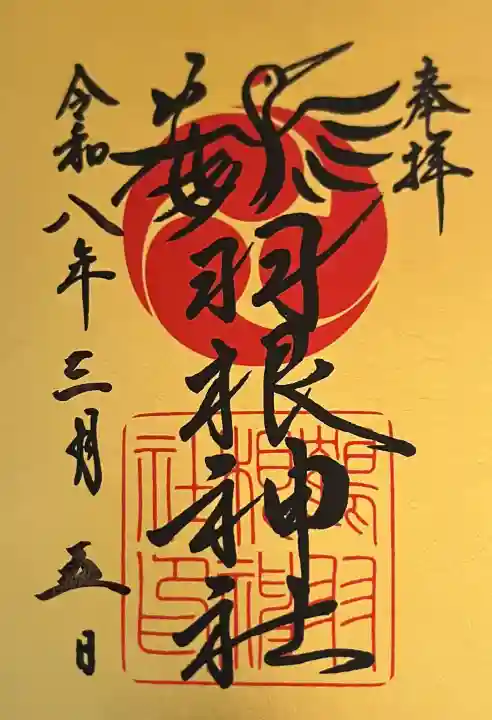 奉拝
鶴羽根神社
令和八年三月五日
鶴羽
根神
社印